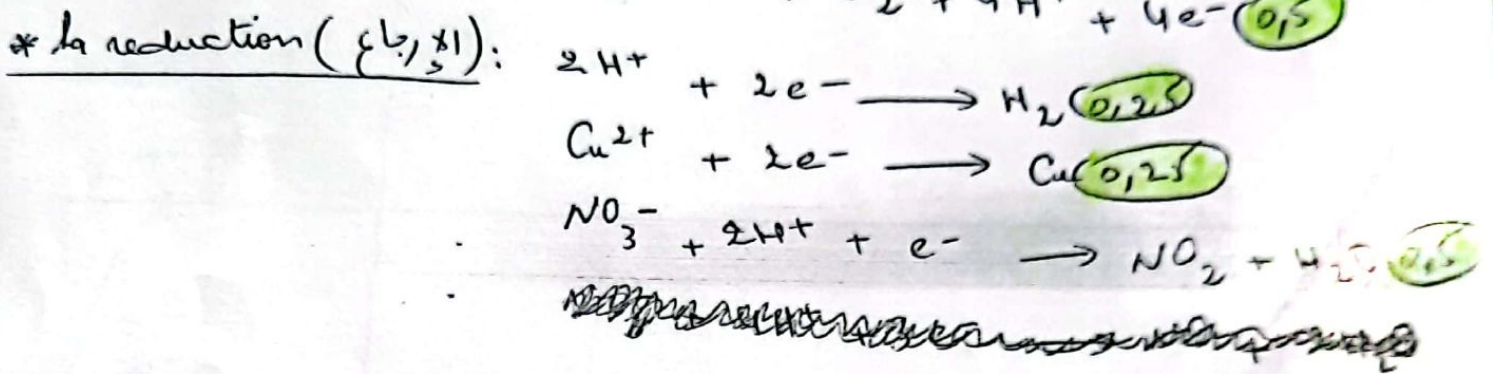 2 + 4H + 4e- 0,5
* la reduction (الإرجاع):
2H+ + 2e- ⟶ H2 0,25
Cu2+ + 2e- ⟶ Cu 0,25
NO3- + 2H+ + e- ⟶ NO2 + H2O 0,5